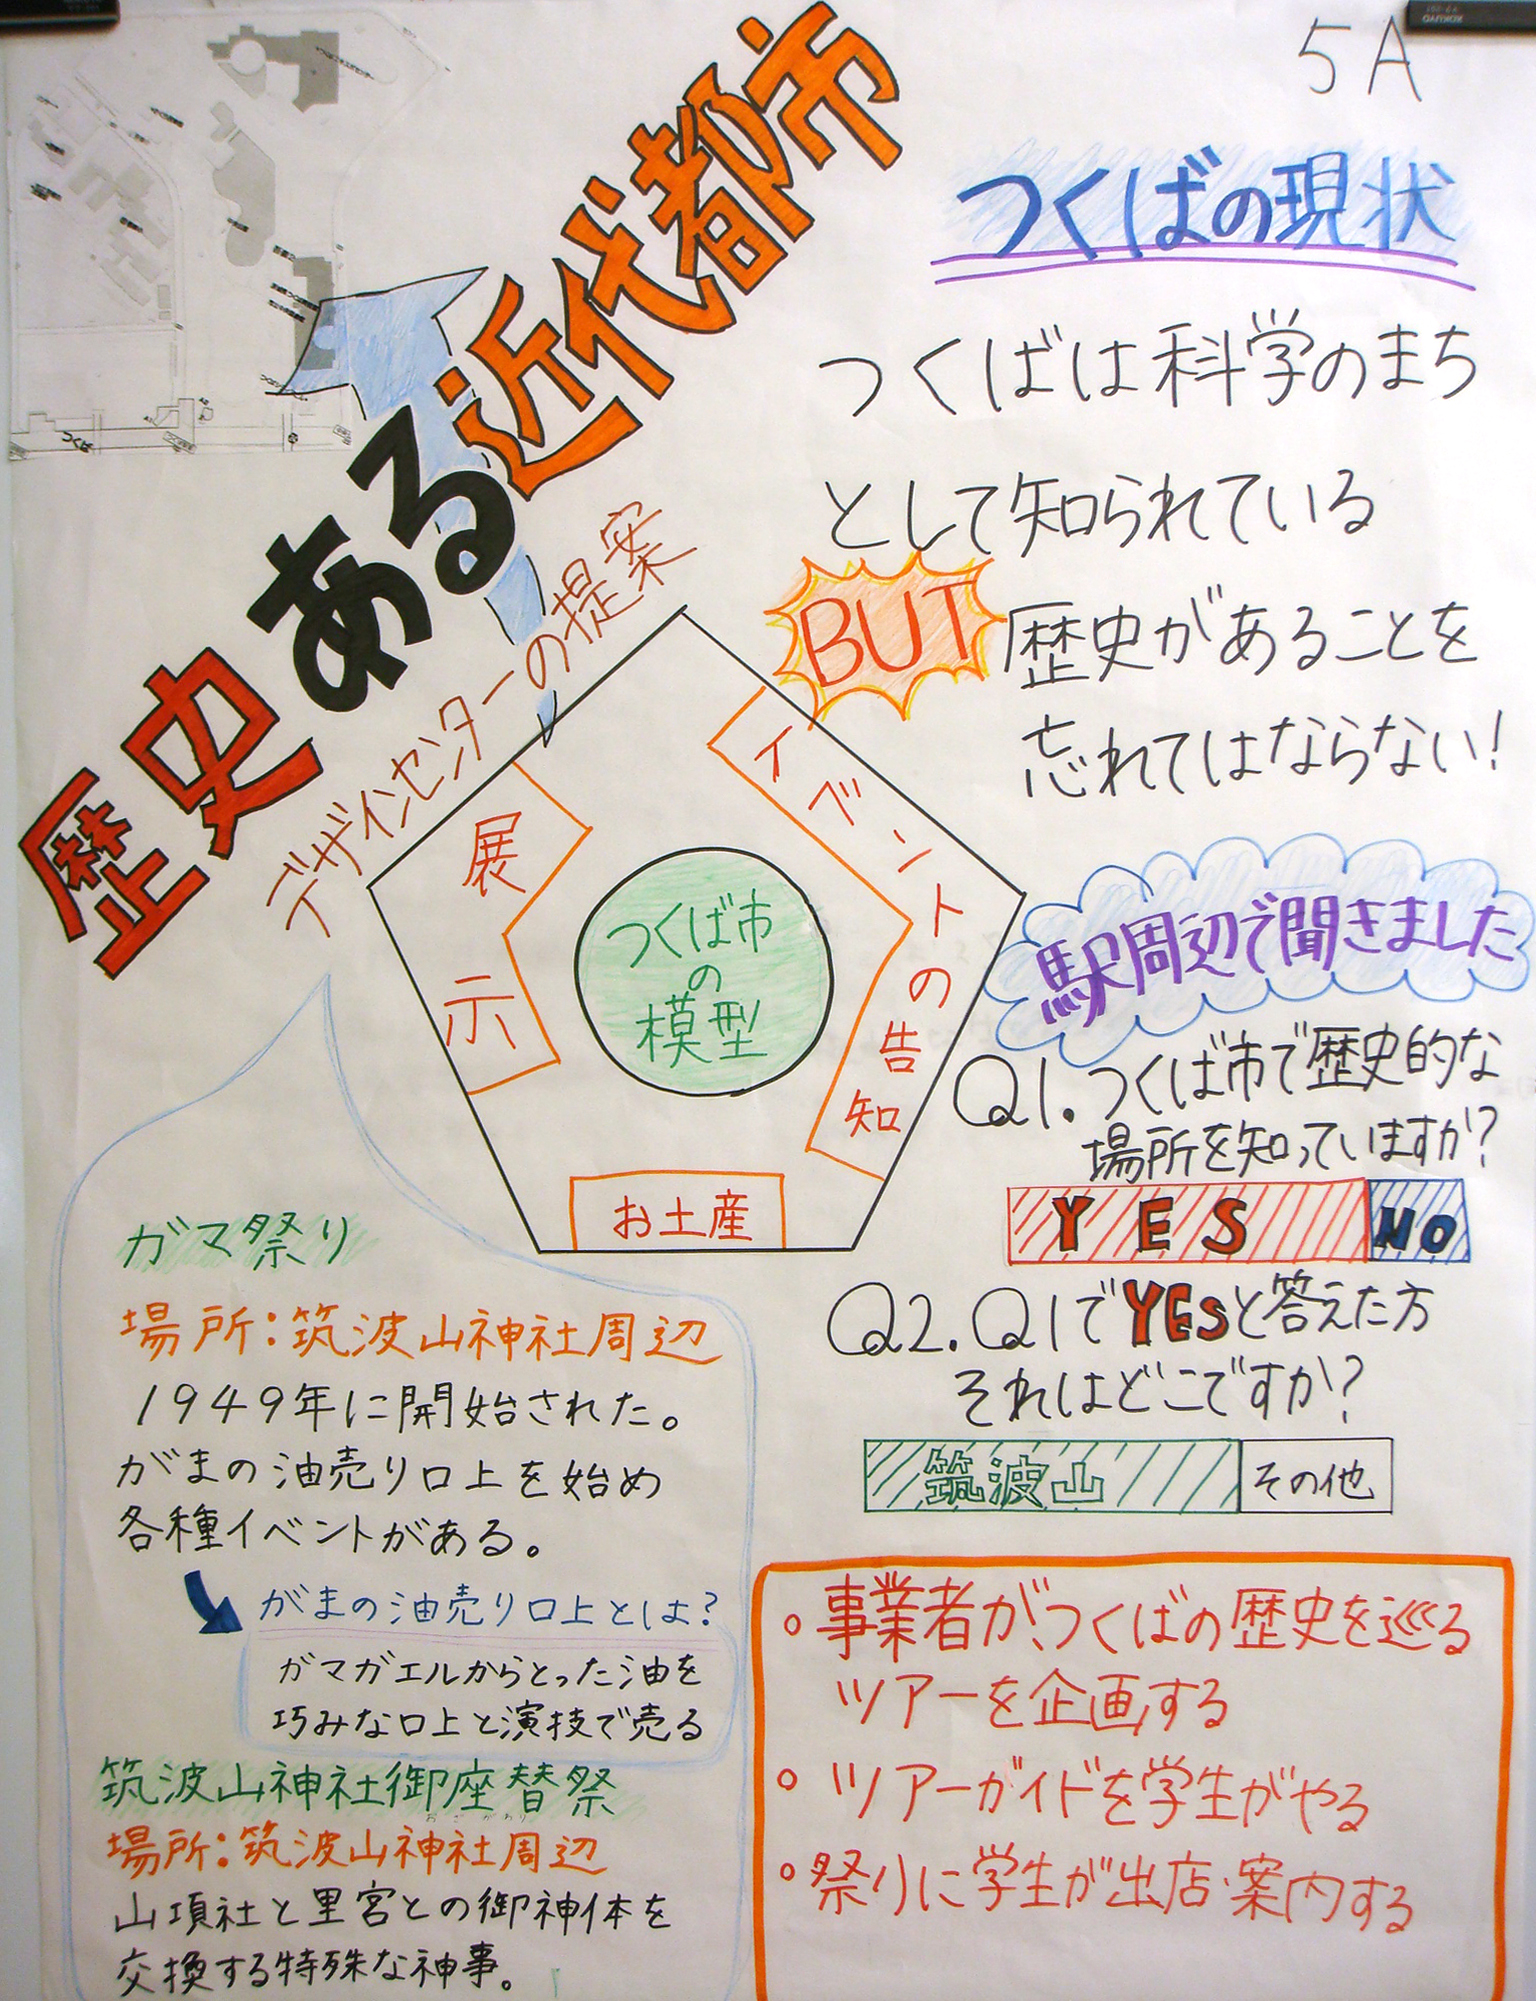 5A
歴史ある近代都市
つくばの現状
つくばは科学のまち
として知られている
BUT 歴史があることを
忘れてはならない!
デザインセンターの提案
展示
イベントの告知
つくば市
の
模型
お土産
駅周辺で聞きました
Q1.つくば市で歴史的な
場所を知っていますか?
YES NO
Q2.Q1でYESと答えた方
それはどこですか?
筑波山 その他
ガマ祭り
場所:筑波山神社周辺
1949年に開始された。
がまの油売り口上を始め
各種イベントがある。
がまの油売り口上とは?
ガマガエルからとった油を
巧みな口上と演技で売る
筑波山神社御座替祭
おざがわり
場所:筑波山神社周辺
山項社と里宮との御神体を
交換する特殊な神事。
・事業者が、つくばの歴史を巡る
ツアーを企画する
・ツアーガイドを学生がやる
・祭りに学生が出店・案内する
つくば
KOKUYO